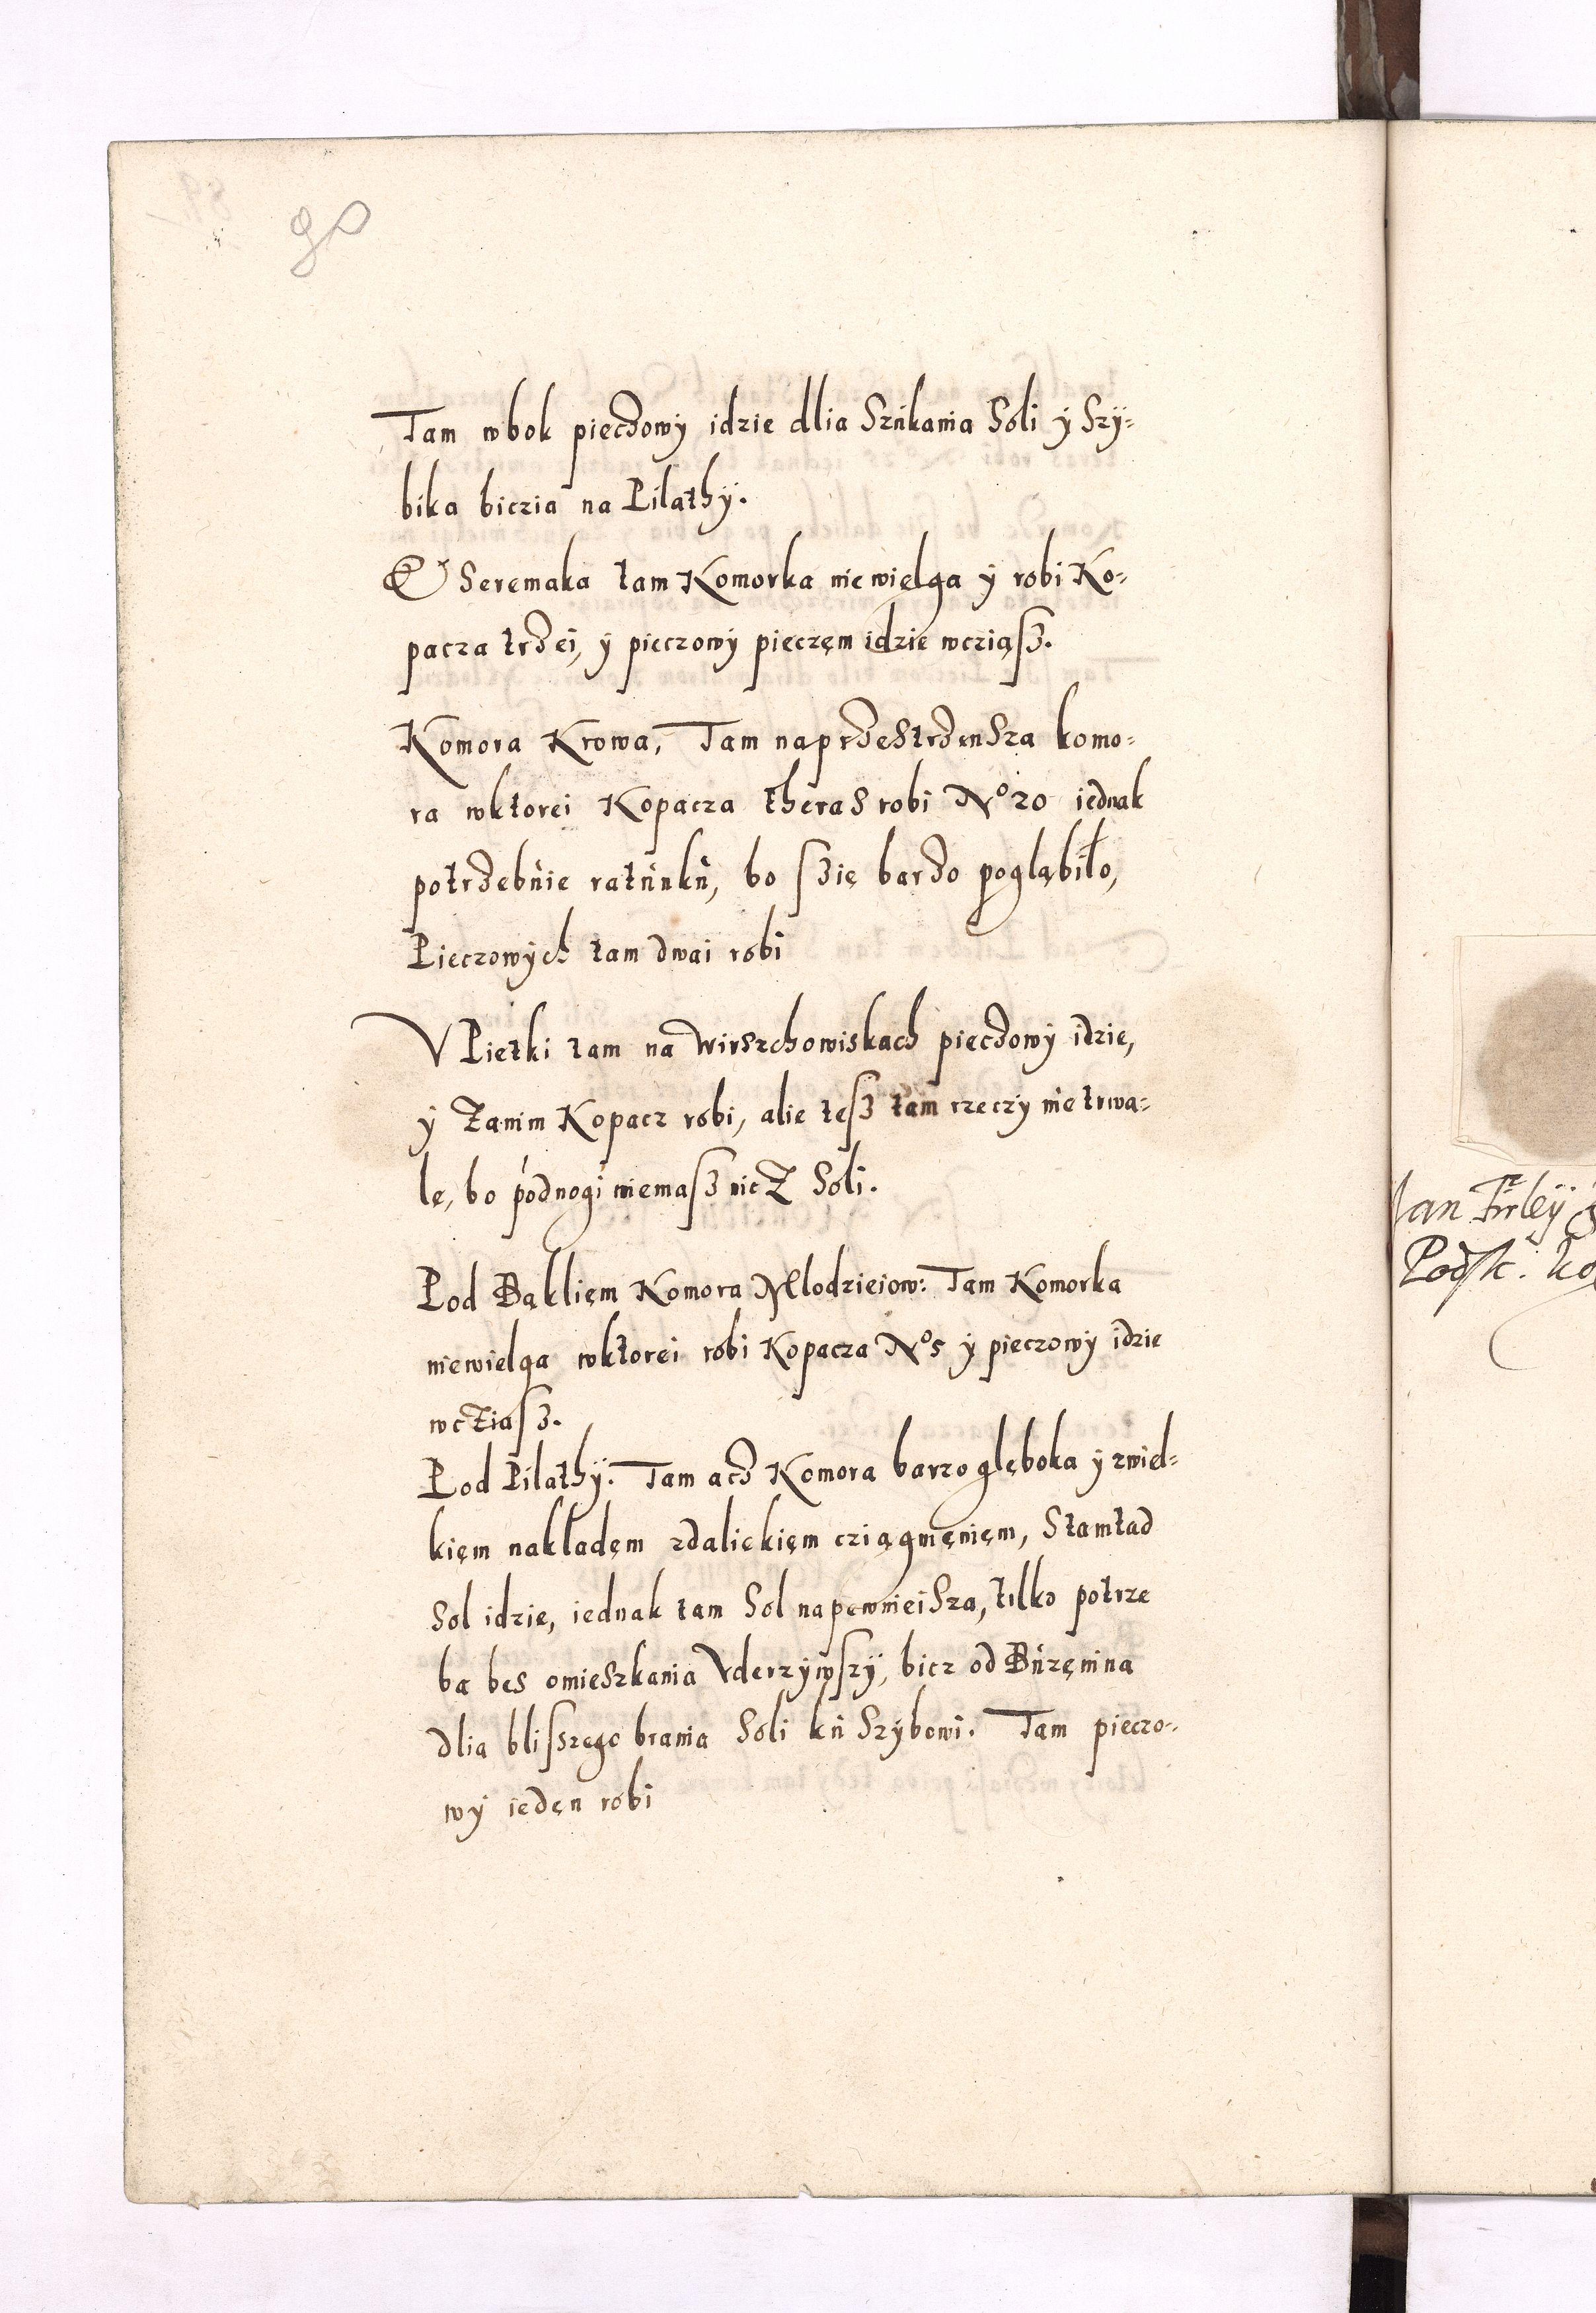 90
Tam wbok pieczowÿ idzie dlia Szukania Soli ÿ Szÿ=
bika biczia na Pilathÿ.
Seremaka tam Komorka niewielga ÿ robi Ko=
pacza trzei, ÿ pieczowÿ pieczęm idzie wcziąsz.
Komora Krowa, Tam naprzestrzensza komo=
ra wktorei Kopacza theras robi No 20 iednak
potrzebuie ratunku, bo szię barzo pogląbiło,
Pieczowÿch tam dwai robi
V Pietki tam na wirszchowiskach pieczowÿ idzie,
ÿ zanim Kopacz robi, alie tesz tam rzeczÿ nie trwa=
le, bo podnogi niemasz nicz Soli.
Pod Bąkliem Komora Mlodzieiow: Tam Komorka
niewielga wktorei robi Kopacza No 5 ÿ pieczowÿ idzie
wcziąsz.
Pod Pilathÿ. Tam acz Komora barzo glęboka ÿ zwiel=
kięm nakładęm zdaliekięm cziągnięnięm, Stamtąd
Sol idzie, iednak tam Sol napewnieiSza, tilko potrze
ba bes omieszkania Vderzÿwszÿ, bicz od Bużęnina
dlia bliszszego brania Soli ku Szÿbowi. Tam pieczo=
wÿ iedęn robi
Jan Firleÿ
Podsk. Ko